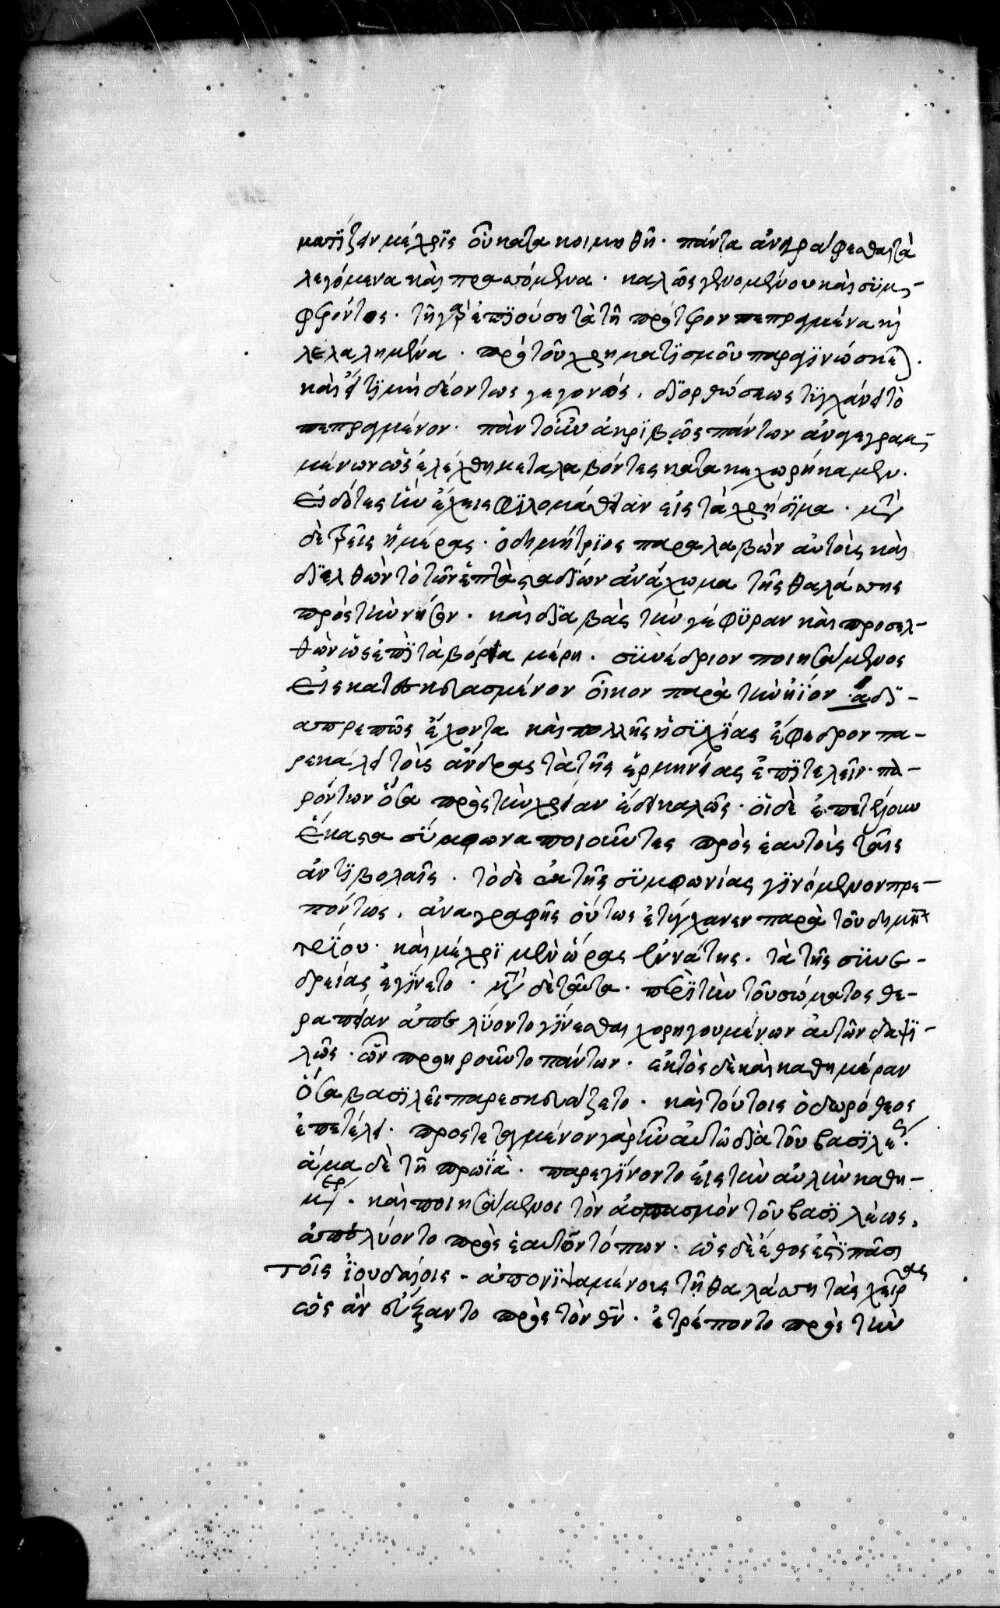 ματίζειν μέχρις οὗ κατακοιμηθῇ· πάντα ἀναγράφεσθαι τὰ
λεγόμενα καὶ πρασσόμενα· καλῶς γινομένου καὶ συμ-
φερόντος· τῇ γὰρ ἐπιούσῃ τὰ τῇ πρότερον πεπραγμένα καὶ
λελαλημένα· πρὸ τοῦ χρηματισμοῦ παραγινώσκεται·
καὶ εἴ τι μὴ δεόντως γέγονε, διορθώσεως τυγχάνει τὸ
πεπραγμένον· πάντ' οὖν ἀκριβῶς πάντων ἀναγεγραμ-
μένων ὡς ἐλέχθη μεταλαβόντες κατακεχωρήκαμεν·
εἰδότες ἣν ἔχεις φιλομάθειαν εἰς τὰ χρήσιμα· μετὰ
δὲ τρεῖς ἡμέρας· ὁ δημήτριος παραλαβὼν αὐτοὺς καὶ
διελθὼν τὸ τῶν ἑπτὰ σταδίων ἀνάχωμα τῆς θαλάσσης
πρὸς τὴν νῆσον· καὶ διαβὰς τὴν γέφυραν καὶ προσελ-
θὼν ὡς ἐπὶ τὰ βόρεια μέρη· συνέδριον ποιησάμενος
εἰς κατεσκευασμένον οἶκον παρὰ τὴν ἠϊόνα δι-
απρεπῶς ἔχοντα καὶ πολλῆς ἡσυχίας ἔφεδρον πα-
ρεκάλει τοὺς ἄνδρας τὰ τῆς ἑρμηνείας ἐπιτελεῖν· πα-
ρόντων ὅσα πρὸς τὴν χρείαν ἔδει καλῶς· οἱ δὲ ἐπετέλουν
ἕκαστα σύμφωνα ποιοῦντες πρὸς ἑαυτοὺς ταῖς
ἀντιβολαῖς· τὸ δὲ ἐκ τῆς συμφωνίας γινόμενον πρε-
πόντως, ἀναγραφῆς οὕτως ἐτύγχανεν παρὰ τοῦ δημη-
τρίου· καὶ μέχρι μὲν ὥρας ἐννάτης· τὰ τῆς συνε-
δρείας ἐγίνετο· μετὰ δὲ ταῦτα· περὶ τὴν τοῦ σώματος θε-
ραπείαν ἀπελύοντο γίνεσθαι χορηγουμένων αὐτῶν δαψι-
λῶς· ὧν προῃροῦντο πάντων· ἐκτὸς δὲ καὶ καθημέραν
ὅσα βασιλεῖ παρεσκευάζετο· καὶ τούτοις ὁ δωρόθεος
ἐπετέλει· προστεταγμένον γὰρ ἦν αὐτῷ διὰ τοῦ βασιλέως·
ἅμα δὲ τῇ πρωΐᾳ· παρεγίνοντο εἰς τὴν αὐλὴν καθη-
μέραν· καὶ ποιησάμενοι τὸν ἀσπασμὸν τοῦ βασιλέως,
ἀπελύοντο πρὸς ἑαυτῶν τόπων· ὡς δὲ ἔθος ἐστὶ πᾶσι
τοῖς ἰουδαίοις- ἀπονιψαμένοις τῇ θαλάσσῃ τὰς χεῖρας
ὡς ἂν εὔξαντο πρὸς τὸν θν· ἐτρέποντο πρὸς τὴν